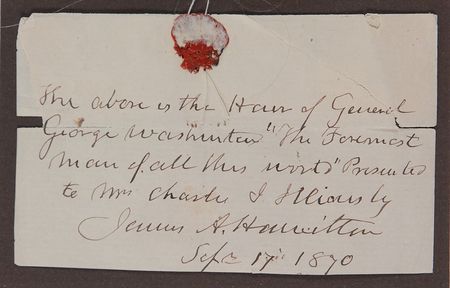 The above is the Hair of General
George Washinton "The Foremost
man of all this world" Presented
to Mrs Charles J
by
James A. Hamilton
Sepr 17th 1870